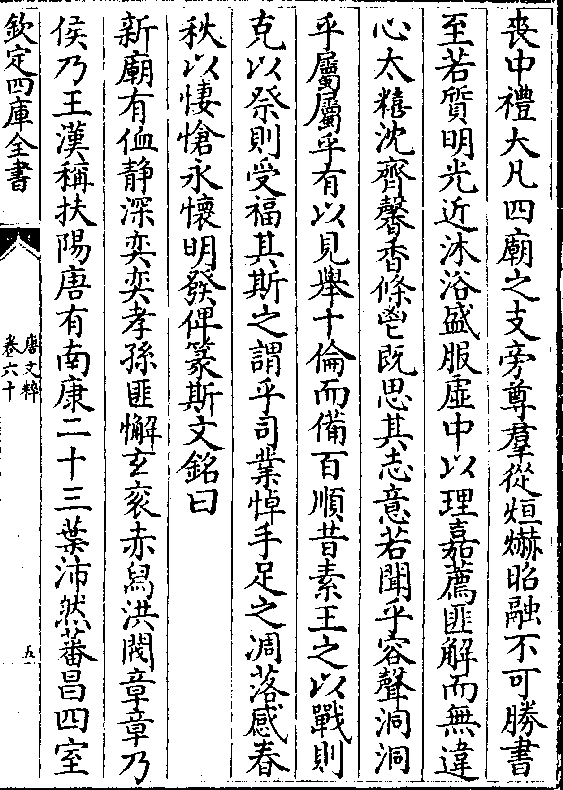 喪中禮大凡四廟之支旁尊羣從烜爀昭融不可勝書
至若質明光近沐浴盛服虛中以理嘉薦匪解而無違
心太糦沈齊馨香條鬯既思其志意若聞乎容聲洞洞
乎屬屬乎有以見舉十倫而備百順昔素王之以戰則
克以祭則受福其斯之謂乎司業悼手足之凋落感春
秋以悽愴永懷明發俾篆斯文銘曰
新廟有侐静深奕奕孝孫匪懈玄衮赤舄洪閥章章乃
侯乃王漢稱扶陽唐有南康二十三葉沛然蕃昌四室
欽定四庫全書
唐文粹
卷六十
五